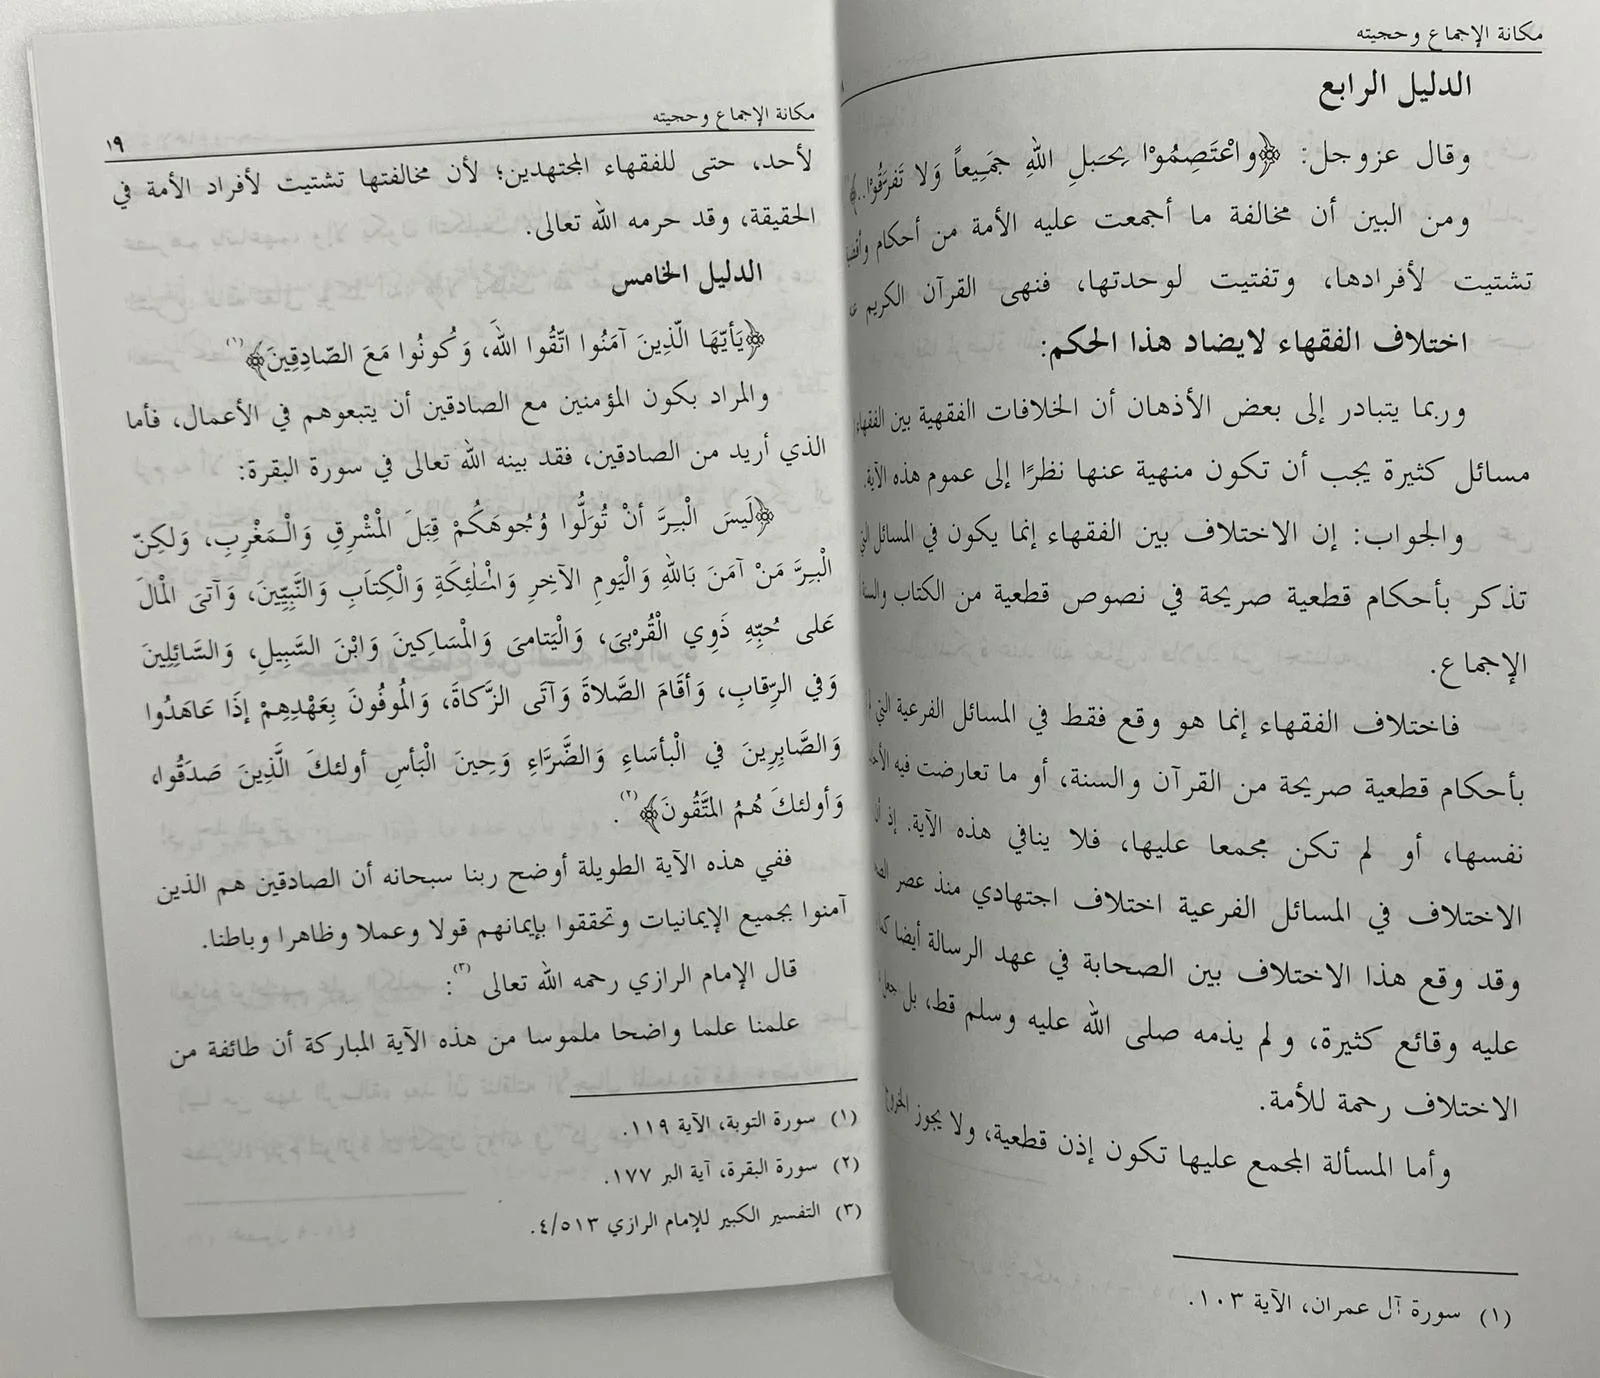 مكانة الإجماع وحجيته
الدليل الرابع
وقال عزوجل: ﴿واعْتَصِمُوْا بِحَبلِ اللهِ جَمَـِيعاً وَلا تَفرَّقُوْا..﴾
ومن البين أن مخالفة ما أجمعت عليه الأمة من أحكام
تشتيت لأفرادها، وتفتيت لوحدتها، فنهى القرآن الكريم
اختلاف الفقهاء لايضاد هذا الحكم:
وربما يتبادر إلى بعض الأذهان أن الخلافات الفقهية بين الفقهاء
مسائل كثيرة يجب أن تكون منهية عنها نظرًا إلى عموم هذه الآية.
والجواب: إن الاختلاف بين الفقهاء إنما يكون في المسائل
تذكر بأحكام قطعية صريحة في نصوص قطعية من الكتاب
الإجماع.
فاختلاف الفقهاء إنما هو وقع فقط في المسائل الفرعية التي
بأحكام قطعية صريحة من القرآن والسنة، أو ما تعارضت فيه
نفسها، أو لم تكن مجمعا عليها، فلا ينافي هذه الآية. إذ
الاختلاف في المسائل الفرعية اختلاف اجتهادي منذ عصر
وقد وقع هذا الاختلاف بين الصحابة في عهد الرسالة أيضا
عليه وقائع كثيرة، ولم يذمه صلى الله عليه وسلم قط، بل جعل
الاختلاف رحمة للأمة.
وأما المسألة المجمع عليها تكون إذن قطعية، ولا يجوز الخروج
(١) سورة آل عمران، الآية ١٠٣.
مكانة الإجماع وحجيته ١٩
لأحد، حتى للفقهاء المجتهدين؛ لأن مخالفتها تشتيت لأفراد الأمة في
الحقيقة، وقد حرمه الله تعالى.
الدليل الخامس
﴿يَأيّهَا الّذِينَ آمَنُوا اتّقُوا اللهَ، وَكُونُوا مَعَ الصّادِقِينَ﴾(١)
والمراد بكون المؤمنين مع الصادقين أن يتبعوهم في الأعمال، فأما
الذي أريد من الصادقين، فقد بينه الله تعالى في سورة البقرة:
﴿لَيسَ الْبِـرَّ أنْ تُوَلُّوا وُجُوهَكُمْ قِبَلَ الْمْشْرِقِ وَالْـمَغْرِبِ، وَلكِنّ
الْبِـرَّ مَنْ آمَنَ بَاللهِ وَالْيَومِ الآخِرِ وَالْمْـَلٰئِكَةِ وَالْكِتَابِ وَالنَّبِيِّينَ، وَآتىَ الْمَالَ
عَلى حُبِّهِ ذَوِي الْقُرْبىَ، وَالْيَتَامىَ وَالْمْسَاكِينَ وَابْنَ السَّبِيلِ، وَالسَّائِلِينَ
وَفي الرِّقَابِ، وَأقَامَ الصَّلاةَ وَآتَى الزَّكاةَ، وَالْمُوفُونَ بِعَهْدِهِمْ إذَا عَاهَدُوا
وَالصَّابِرِينَ في الْبأسَاءِ وَالضَّرَّاءِ وَحِينَ الْبَأسِ أولئكَ الَّذِينَ صَدَقُوا،
وَأولئكَ هُمُ المْتَّقُونَ﴾(٢).
ففي هذه الآية الطويلة أوضح ربنا سبحانه أن الصادقين هم الذين
آمنوا بجميع الإيمانيات وتحققوا بإيمانهم قولا وعملا وظاهرا وباطنا.
قال الإمام الرازي رحمه الله تعالى (٣):
علمنا علما واضحا ملموسا من هذه الآية المباركة أن طائفة من
(١) سورة التوبة، الآية ١١٩.
(٢) سورة البقرة، آية البر ١٧٧.
(٣) التفسير الكبير للإمام الرازي ٤/٥١٣.